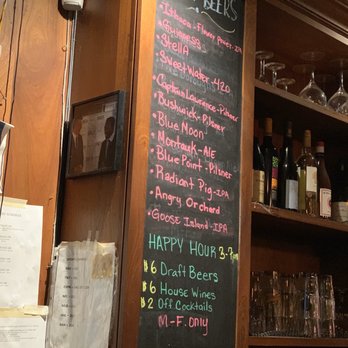 BEERS
• Ithaca - Flower Power - IPA
• Guinness
• Stella
• Sweet Water - 420
• Captain Lawrence - Pilsner
• Bushwick - Pilsner
• Blue Moon
• Montauk - Ale
• Blue Point - Pilsner
• Radiant Pig - IPA
• Angry Orchard
• Goose Island - IPA
HAPPY HOUR 3-7pm
$6 Draft Beers
$6 House Wines
$2 Off Cocktails
M-F. only